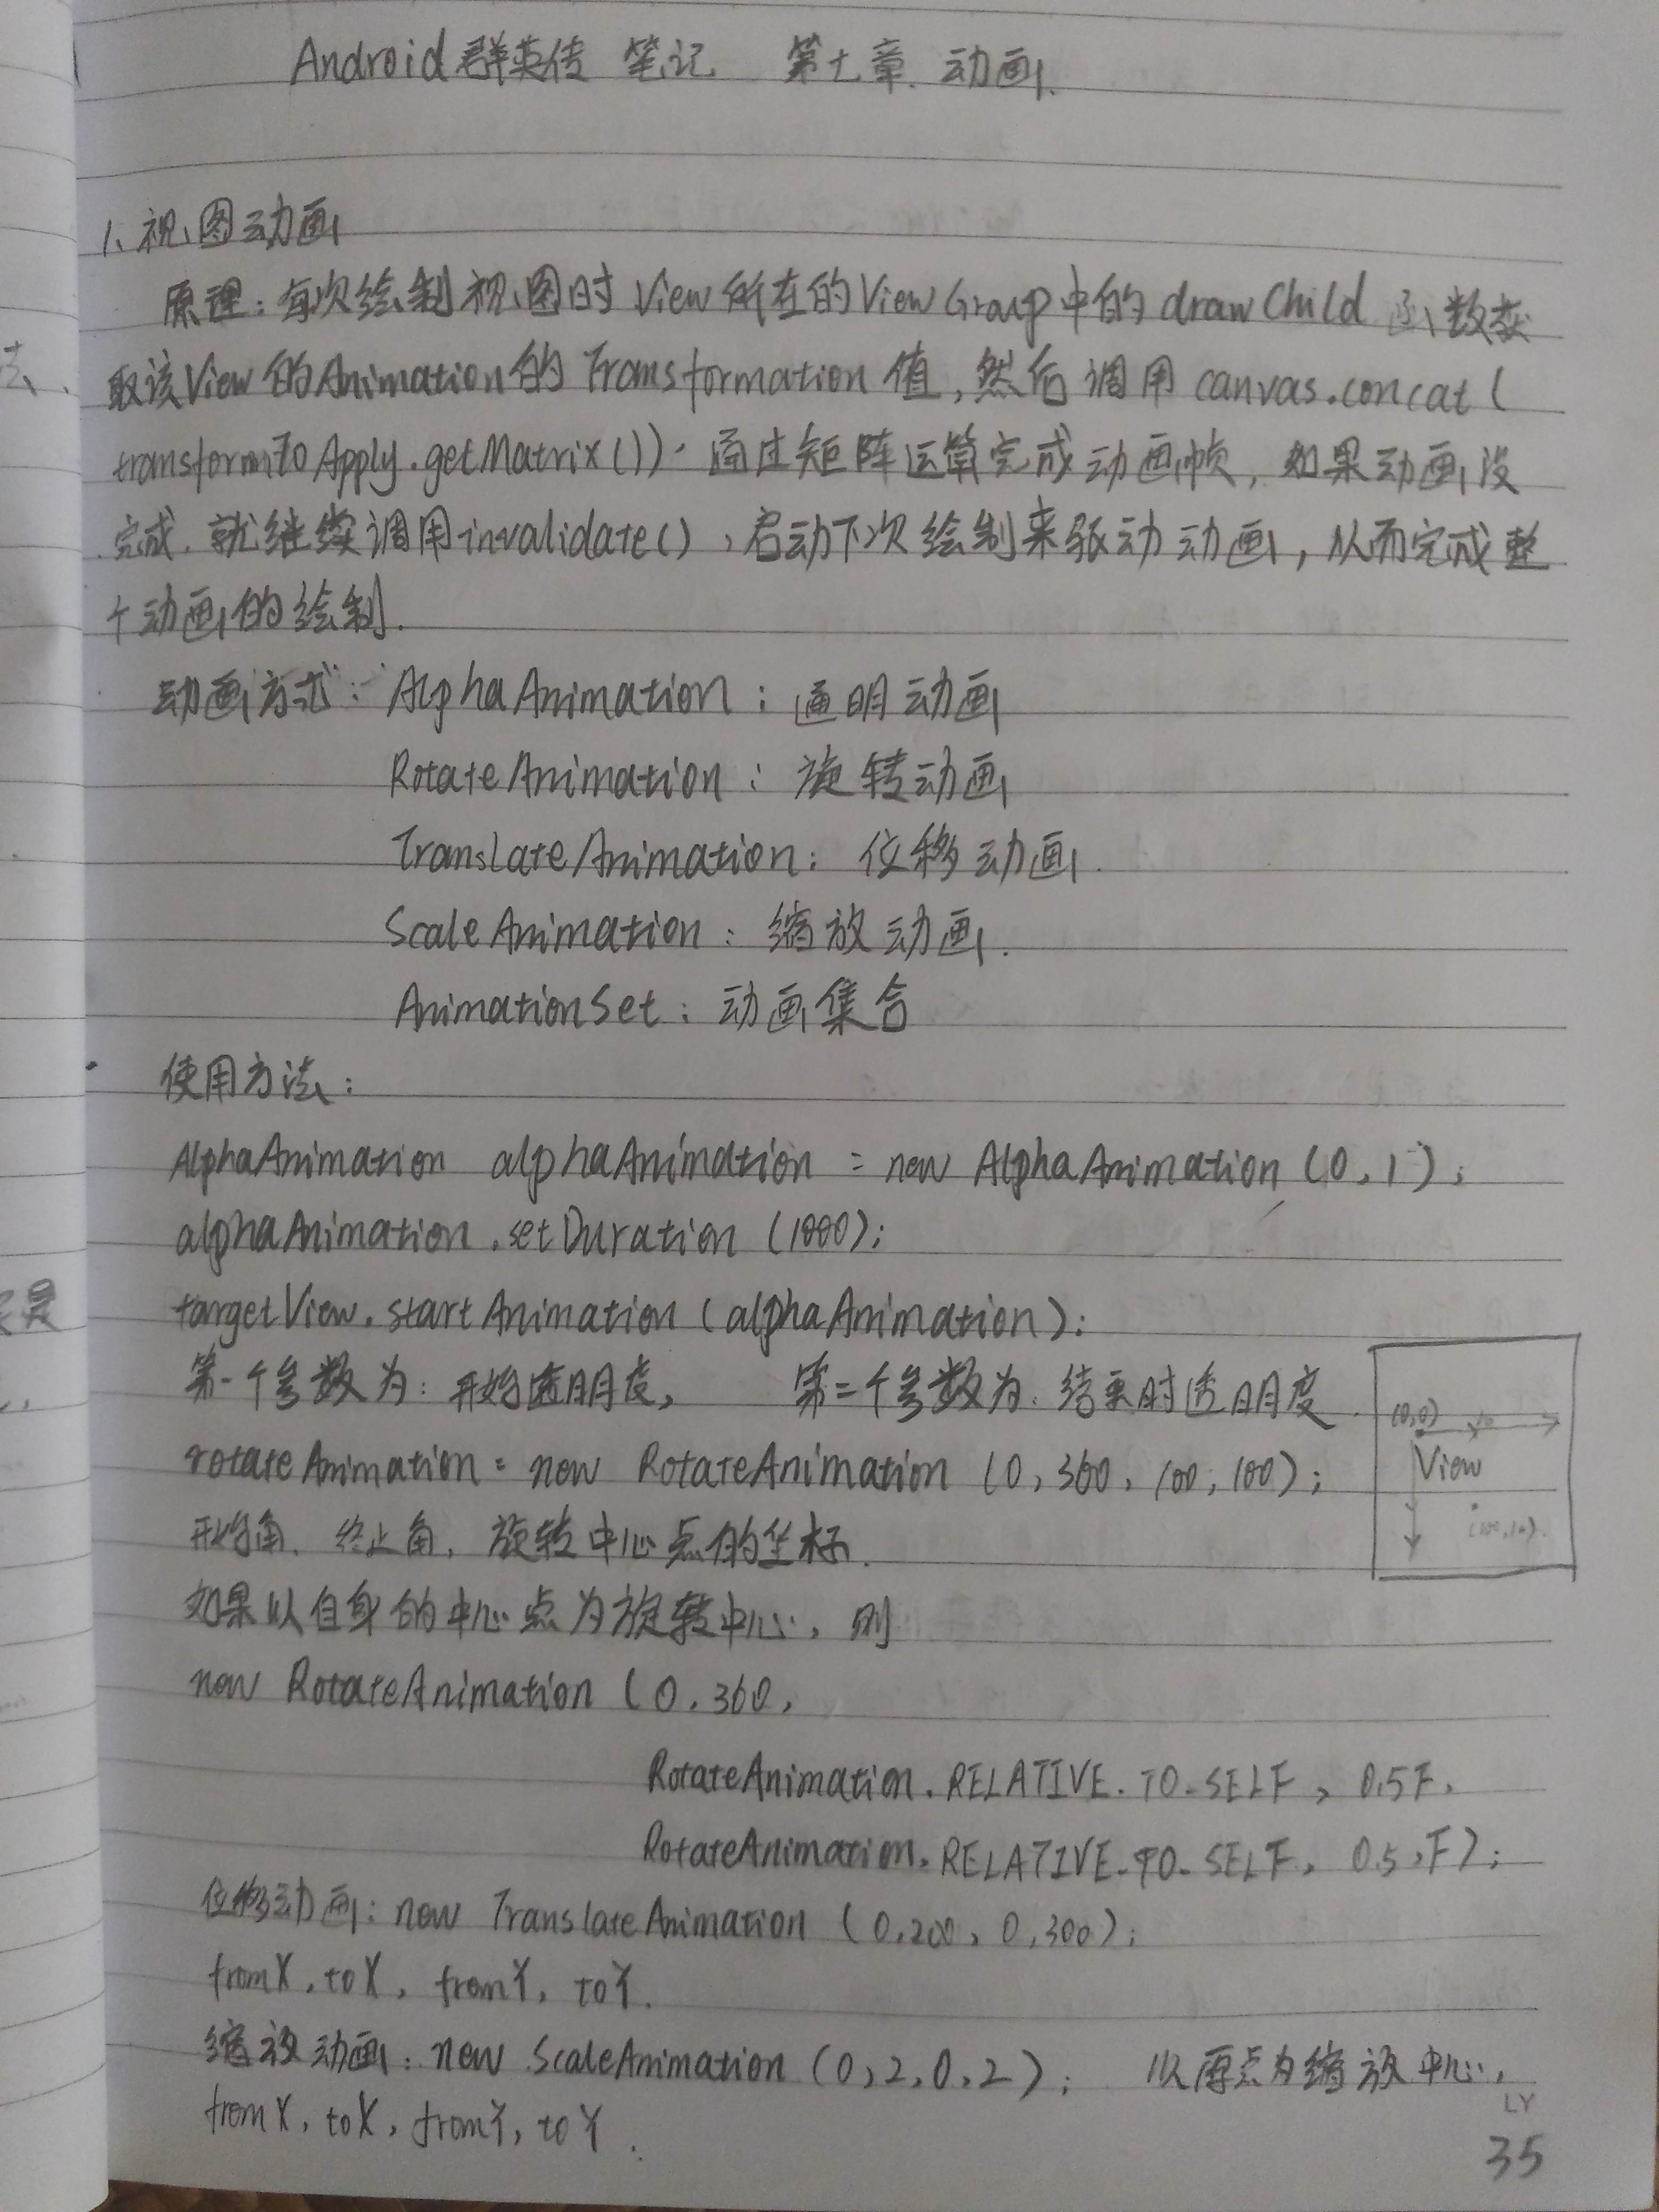 Android群英传 笔记 第七章. 动画.
1、视图动画
原理：每次绘制视图时View所在的ViewGroup中的drawChild函数获
取该View的Animation的Transformation值，然后调用canvas.concat(
transformToApply.getMatrix())．通过矩阵运算完成动画帧，如果动画没
完成．就继续调用invalidate()，启动下次绘制来驱动动画，从而完成整
个动画的绘制.
动画方式：AlphaAnimation：透明动画
RotateAnimation：旋转动画
TranslateAnimation：位移动画.
ScaleAnimation：缩放动画.
AnimationSet：动画集合
使用方法：
AlphaAnimation alphaAnimation = new AlphaAnimation (0, 1);
alphaAnimation.setDuration (1000);
targetView.startAnimation (alphaAnimation);
第一个参数为：开始透明度， 第二个参数为：结束时透明度.
rotateAnimation = new RotateAnimation (0, 360, 100, 100);
开始角．终止角．旋转中心点的坐标.
(0,0)
View
如果以自身的中心点为旋转中心，则
new RotateAnimation (0, 360,
RotateAnimation.RELATIVE_TO_SELF, 0.5F,
RotateAnimation.RELATIVE_TO_SELF, 0.5,F);
位移动画：new TranslateAnimation (0,200, 0,300);
fromX, toX, fromY, toY.
缩放动画：new ScaleAnimation (0,2,0,2); 以原点为缩放中心，
fromX, toX, fromY, toY.
LY
35